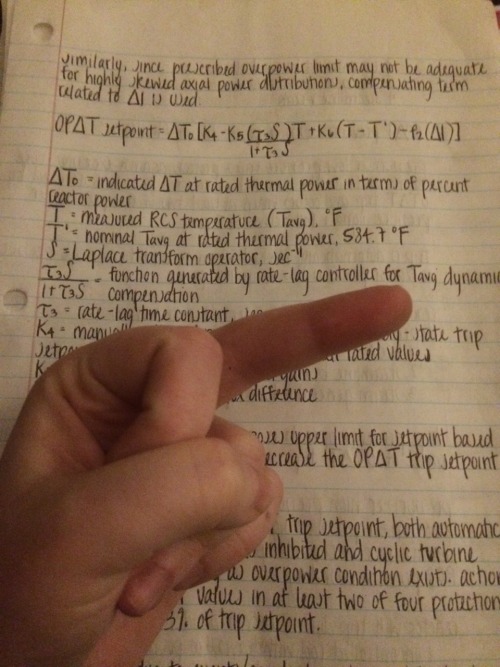 similarly, since prescribed overpower limit may not be adequate
for highly skewed axial power distributions, compensating term
related to ΔI is used
OPΔT setpoint = ΔT₀[K₄ - K₅(τ₃S)T + K₆(T - T') - f₂(ΔI)]
1+τ₃S
ΔT₀ = indicated ΔT at rated thermal power in terms of percent
reactor power
T = measured RCS temperature (Tavg), °F
T' = nominal Tavg at rated thermal power, 534.7 °F
S = Laplace transform operator, sec⁻¹
τ₃S = function generated by rate-lag controller for Tavg dynamic
1+τ₃S compensation
τ₃ = rate-lag time constant,
K₄ = -state trip
at rated values
gains
difference
upper limit for setpoint based
the OPΔT trip setpoint
trip setpoint, both automatic
inhibited and cyclic turbine
as overpower condition exists.
values in at least two of four protection
of trip setpoint.